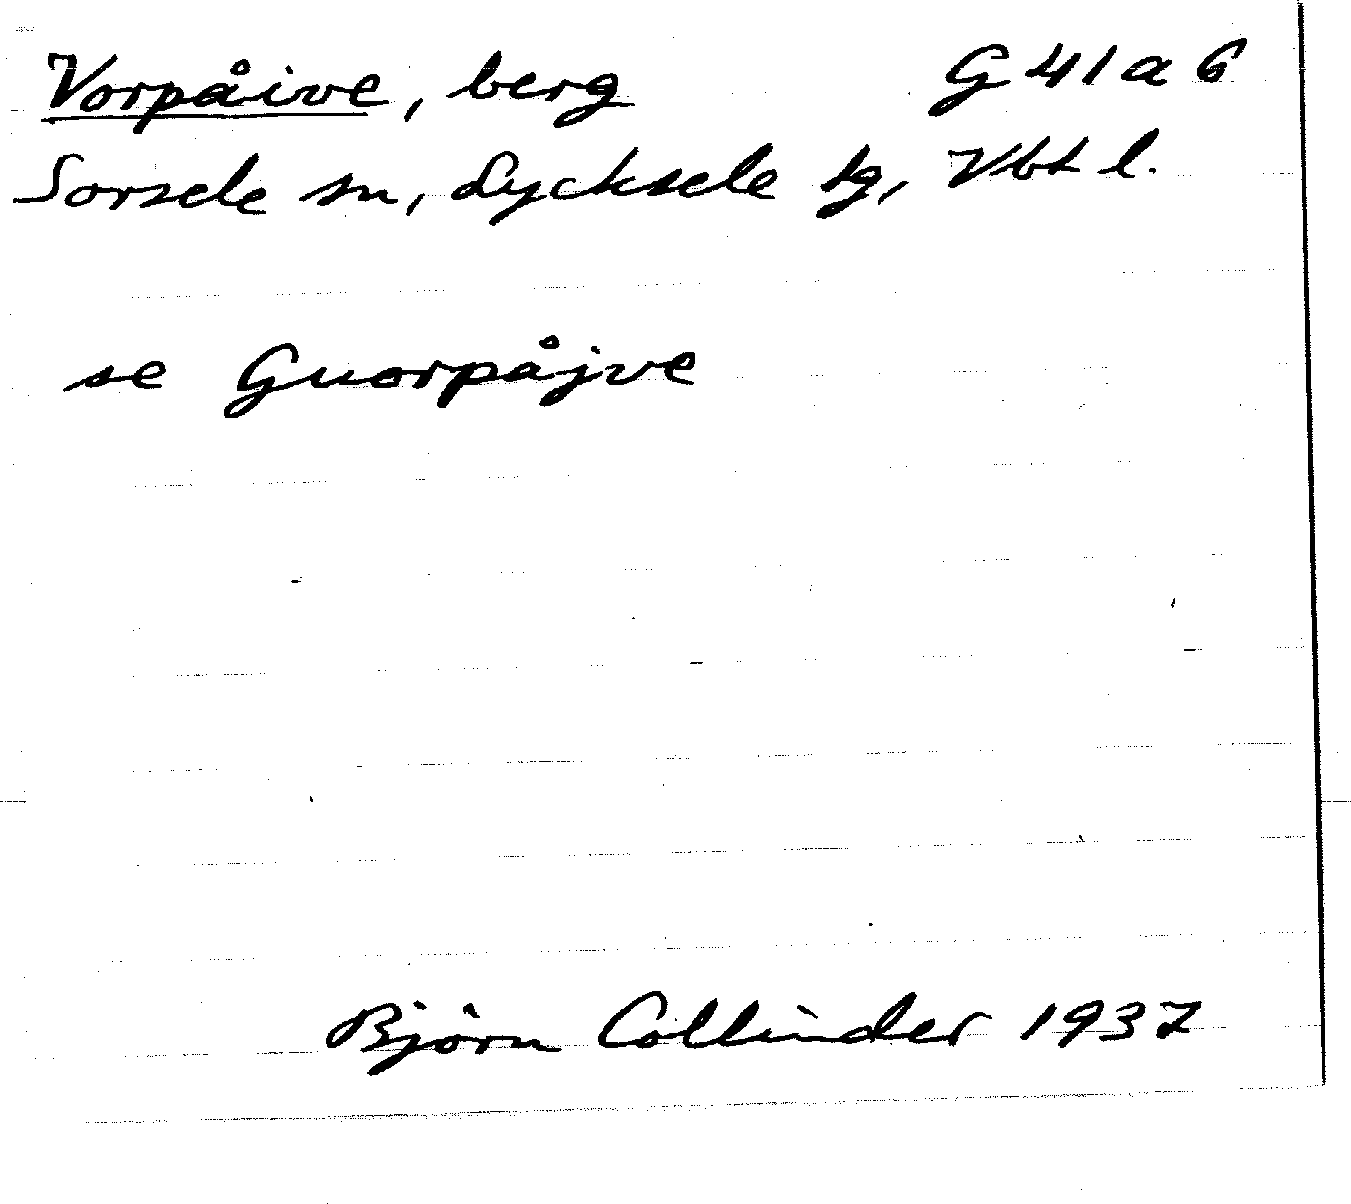 Vorpåive, berg G 41 a 6
Sorsele sn, Lycksele tg, Vbt l.
se Guorpåjve
Björn Collinder 1937